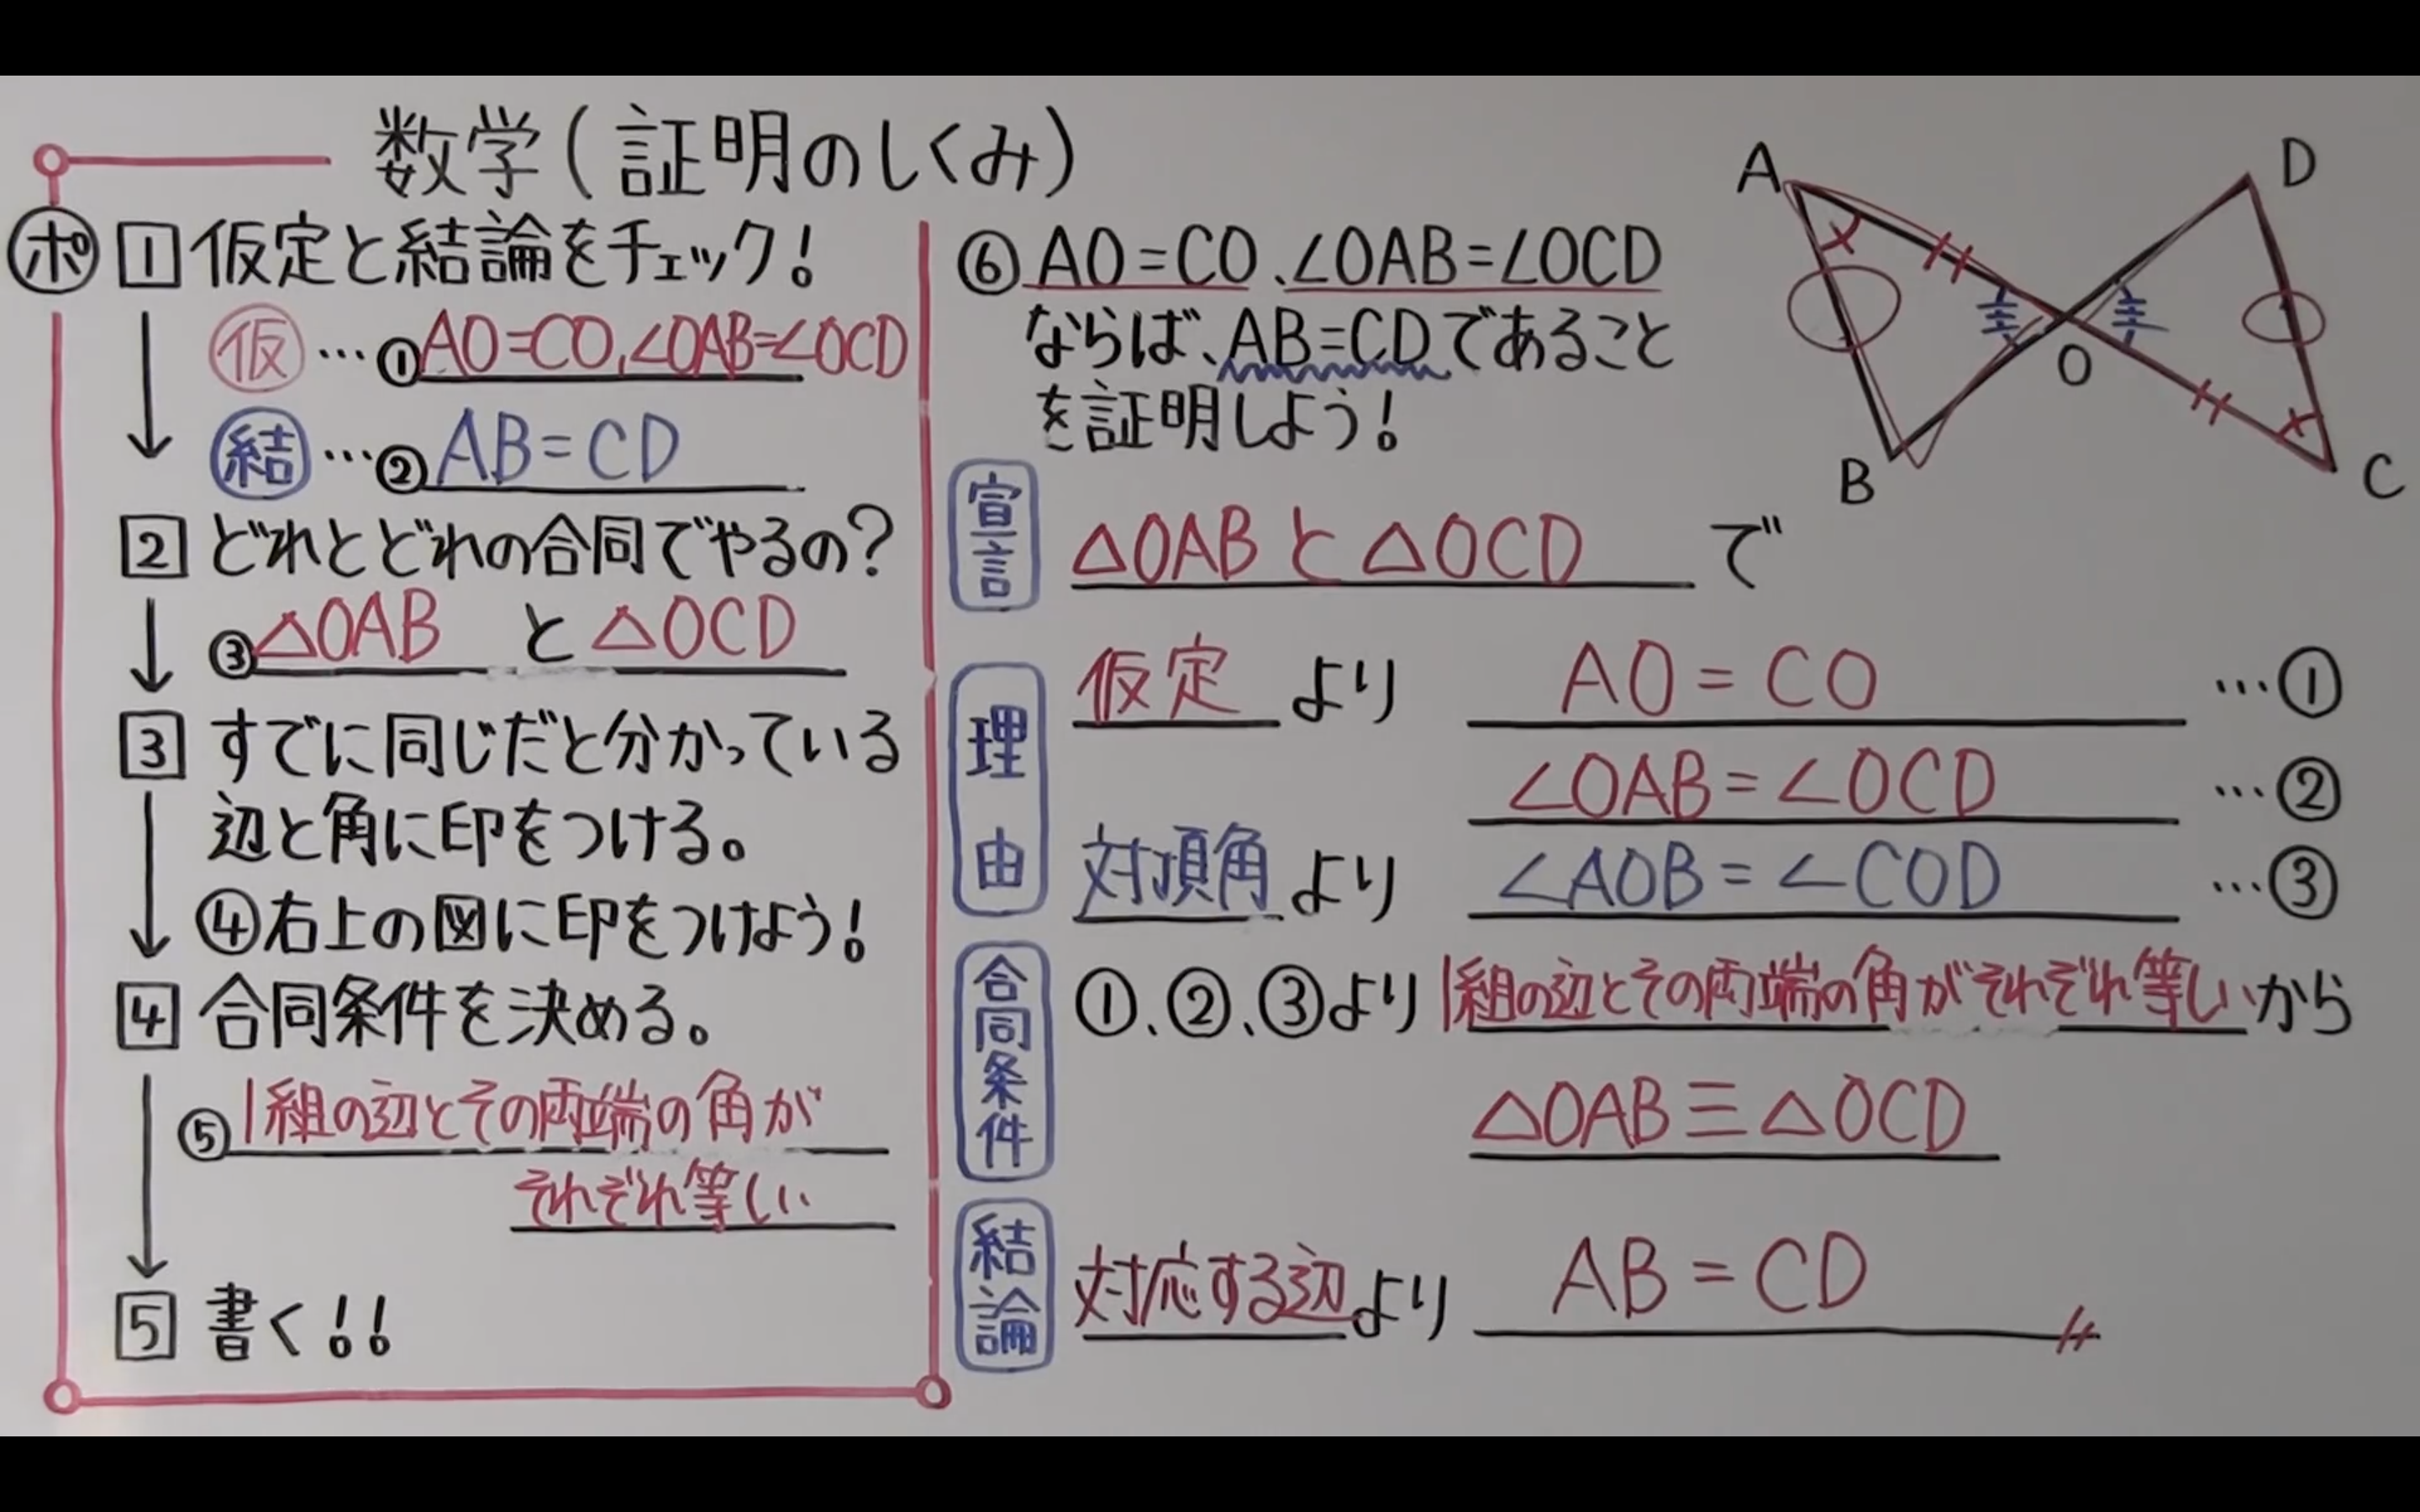 数学(証明のしくみ)
ポ 1 仮定と結論をチェック!
仮 …①AO=CO、∠OAB=∠OCD
結 …②AB=CD
2 どれとどれの合同でやるの?
③△OAB と △OCD
3 すでに同じだと分かっている
辺と角に印をつける。
④右上の図に印をつけよう!
4 合同条件を決める。
⑤1組の辺とその両端の角が
それぞれ等しい
5 書く!!
⑥AO=CO、∠OAB=∠OCD
ならば、AB=CDであること
を証明しよう!
A
D
O
B
C
宣言
△OABと△OCD で
理由
仮定 より AO=CO …①
∠OAB=∠OCD …②
対頂角 より ∠AOB=∠COD …③
合同条件
①、②、③より 1組の辺とその両端の角がそれぞれ等しいから
△OAB≡△OCD
結論
対応する辺より AB=CD